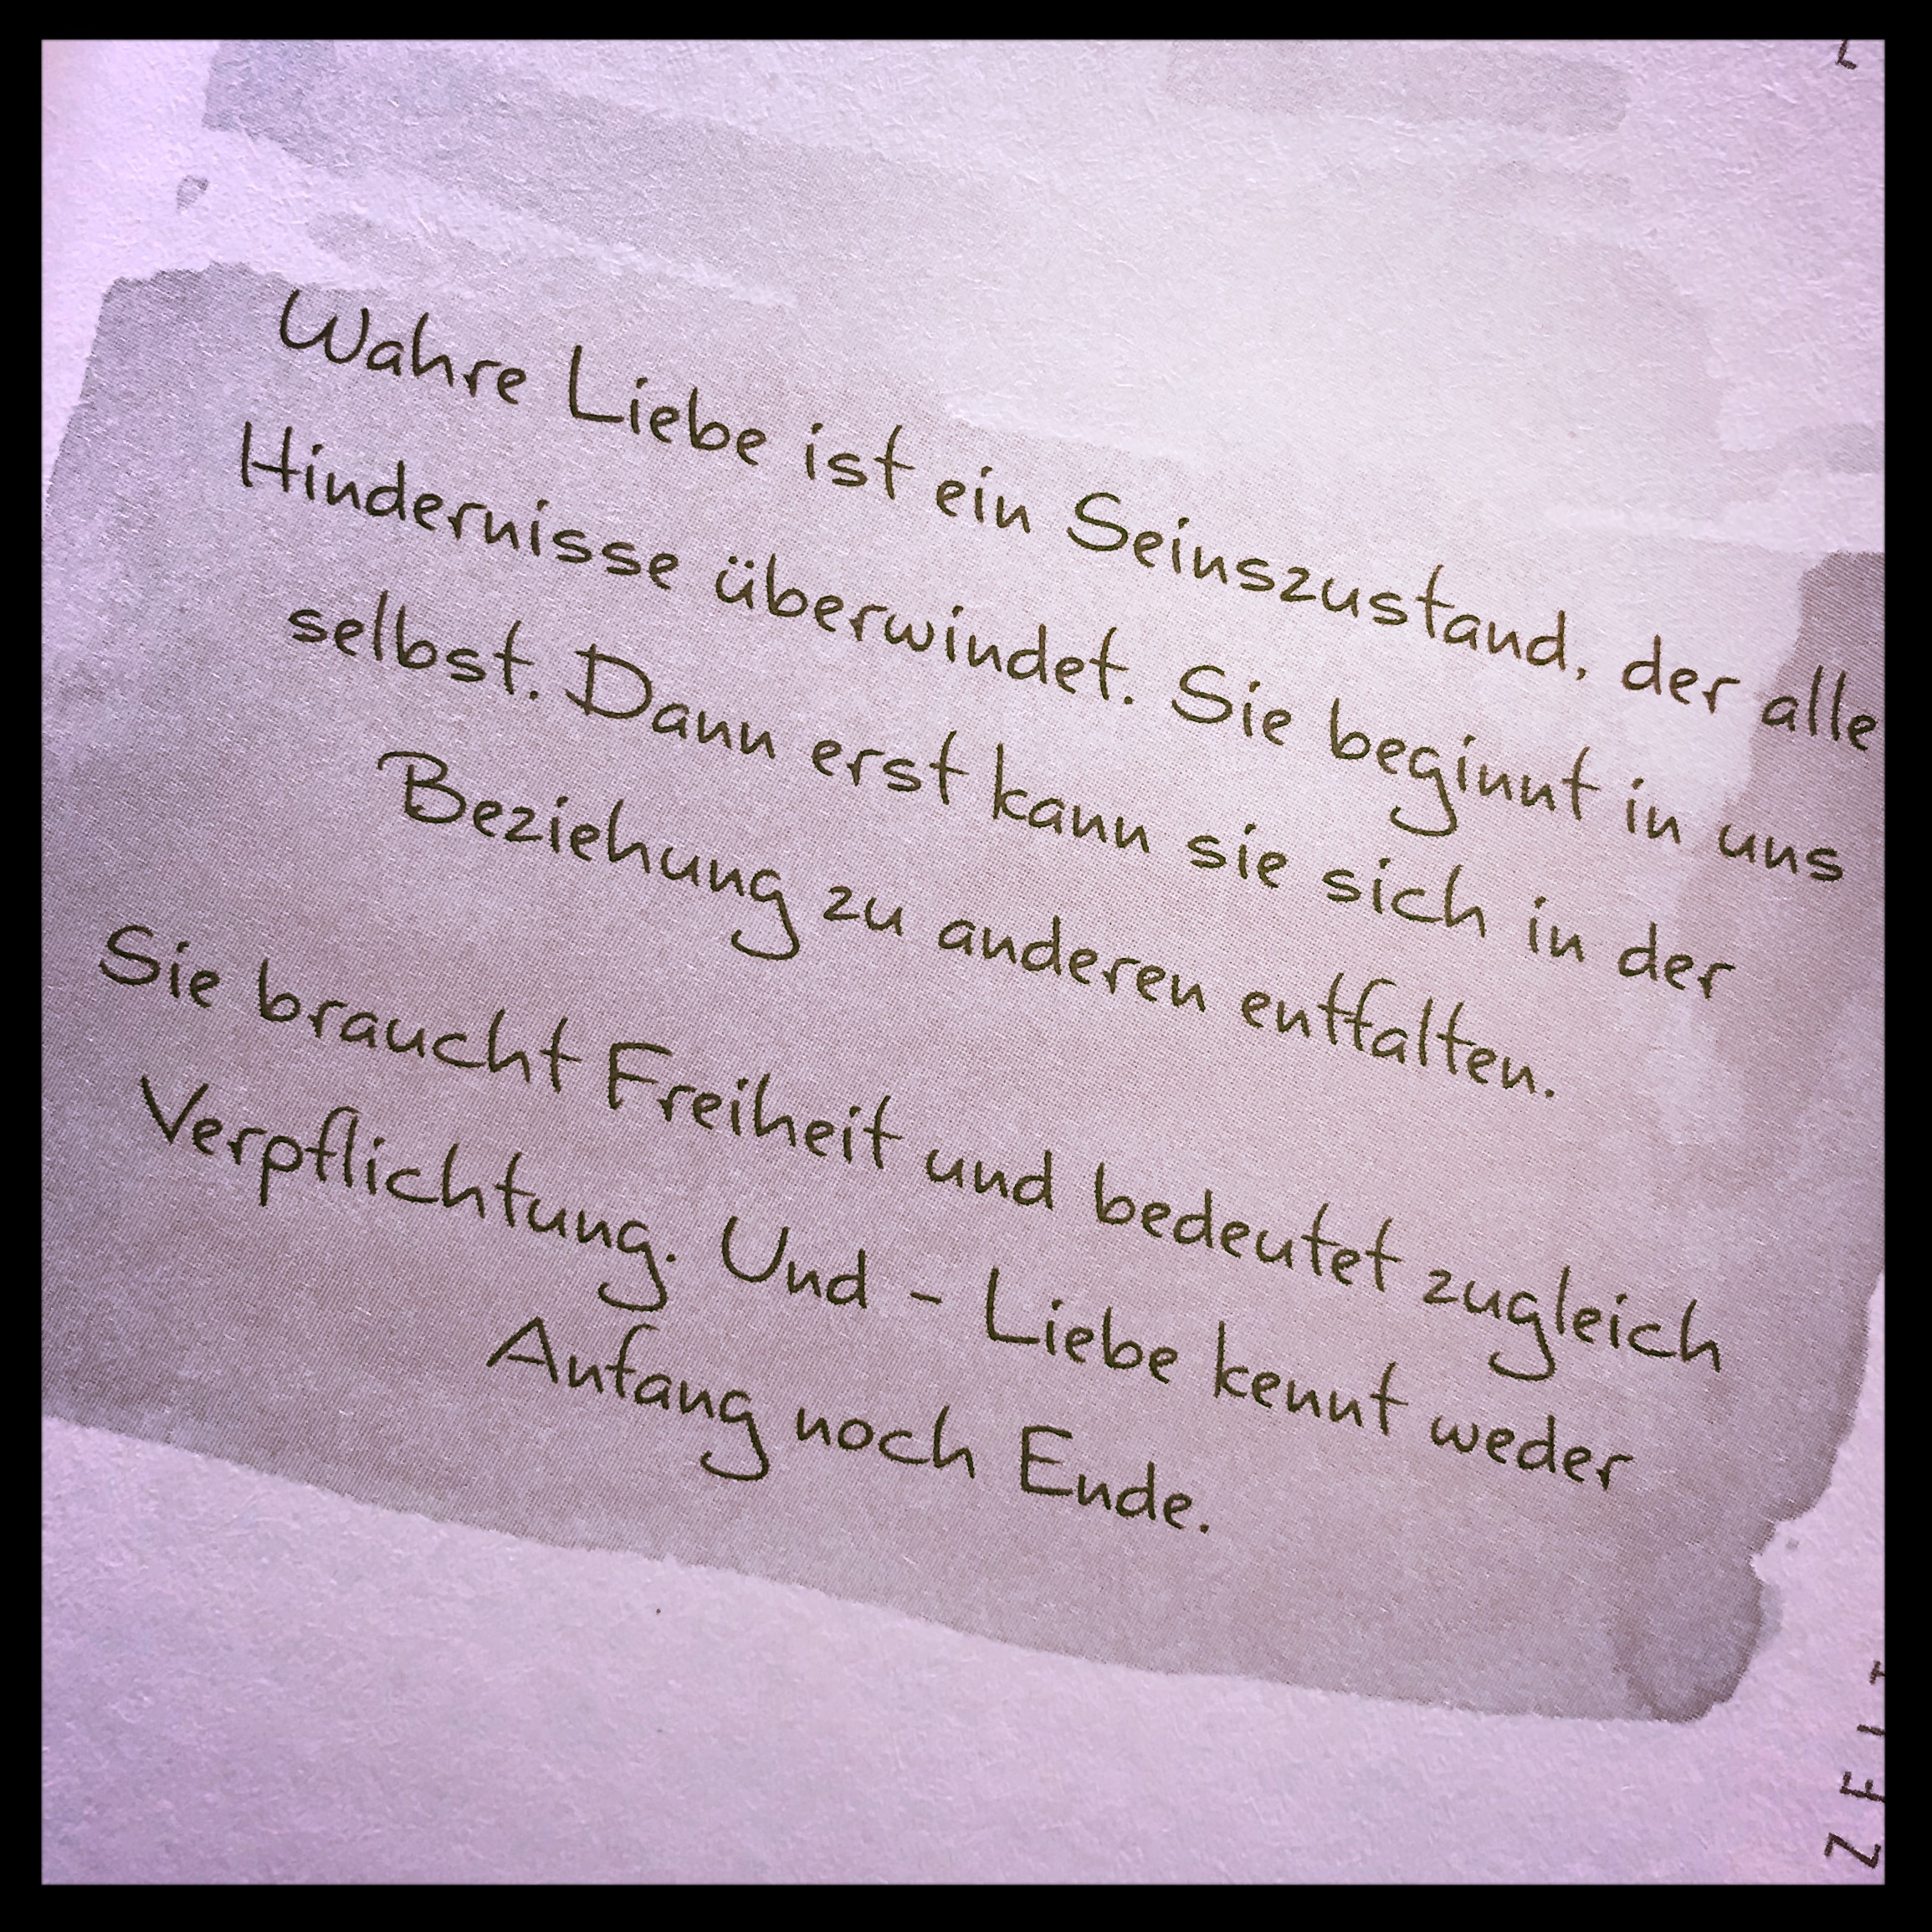 Wahre Liebe ist ein Seinszustand, der alle
Hindernisse überwindet. Sie beginnt in uns
selbst. Dann erst kann sie sich in der
Beziehung zu anderen entfalten.
Sie braucht Freiheit und bedeutet zugleich
Verpflichtung. Und - Liebe kennt weder
Anfang noch Ende.
ZEIT